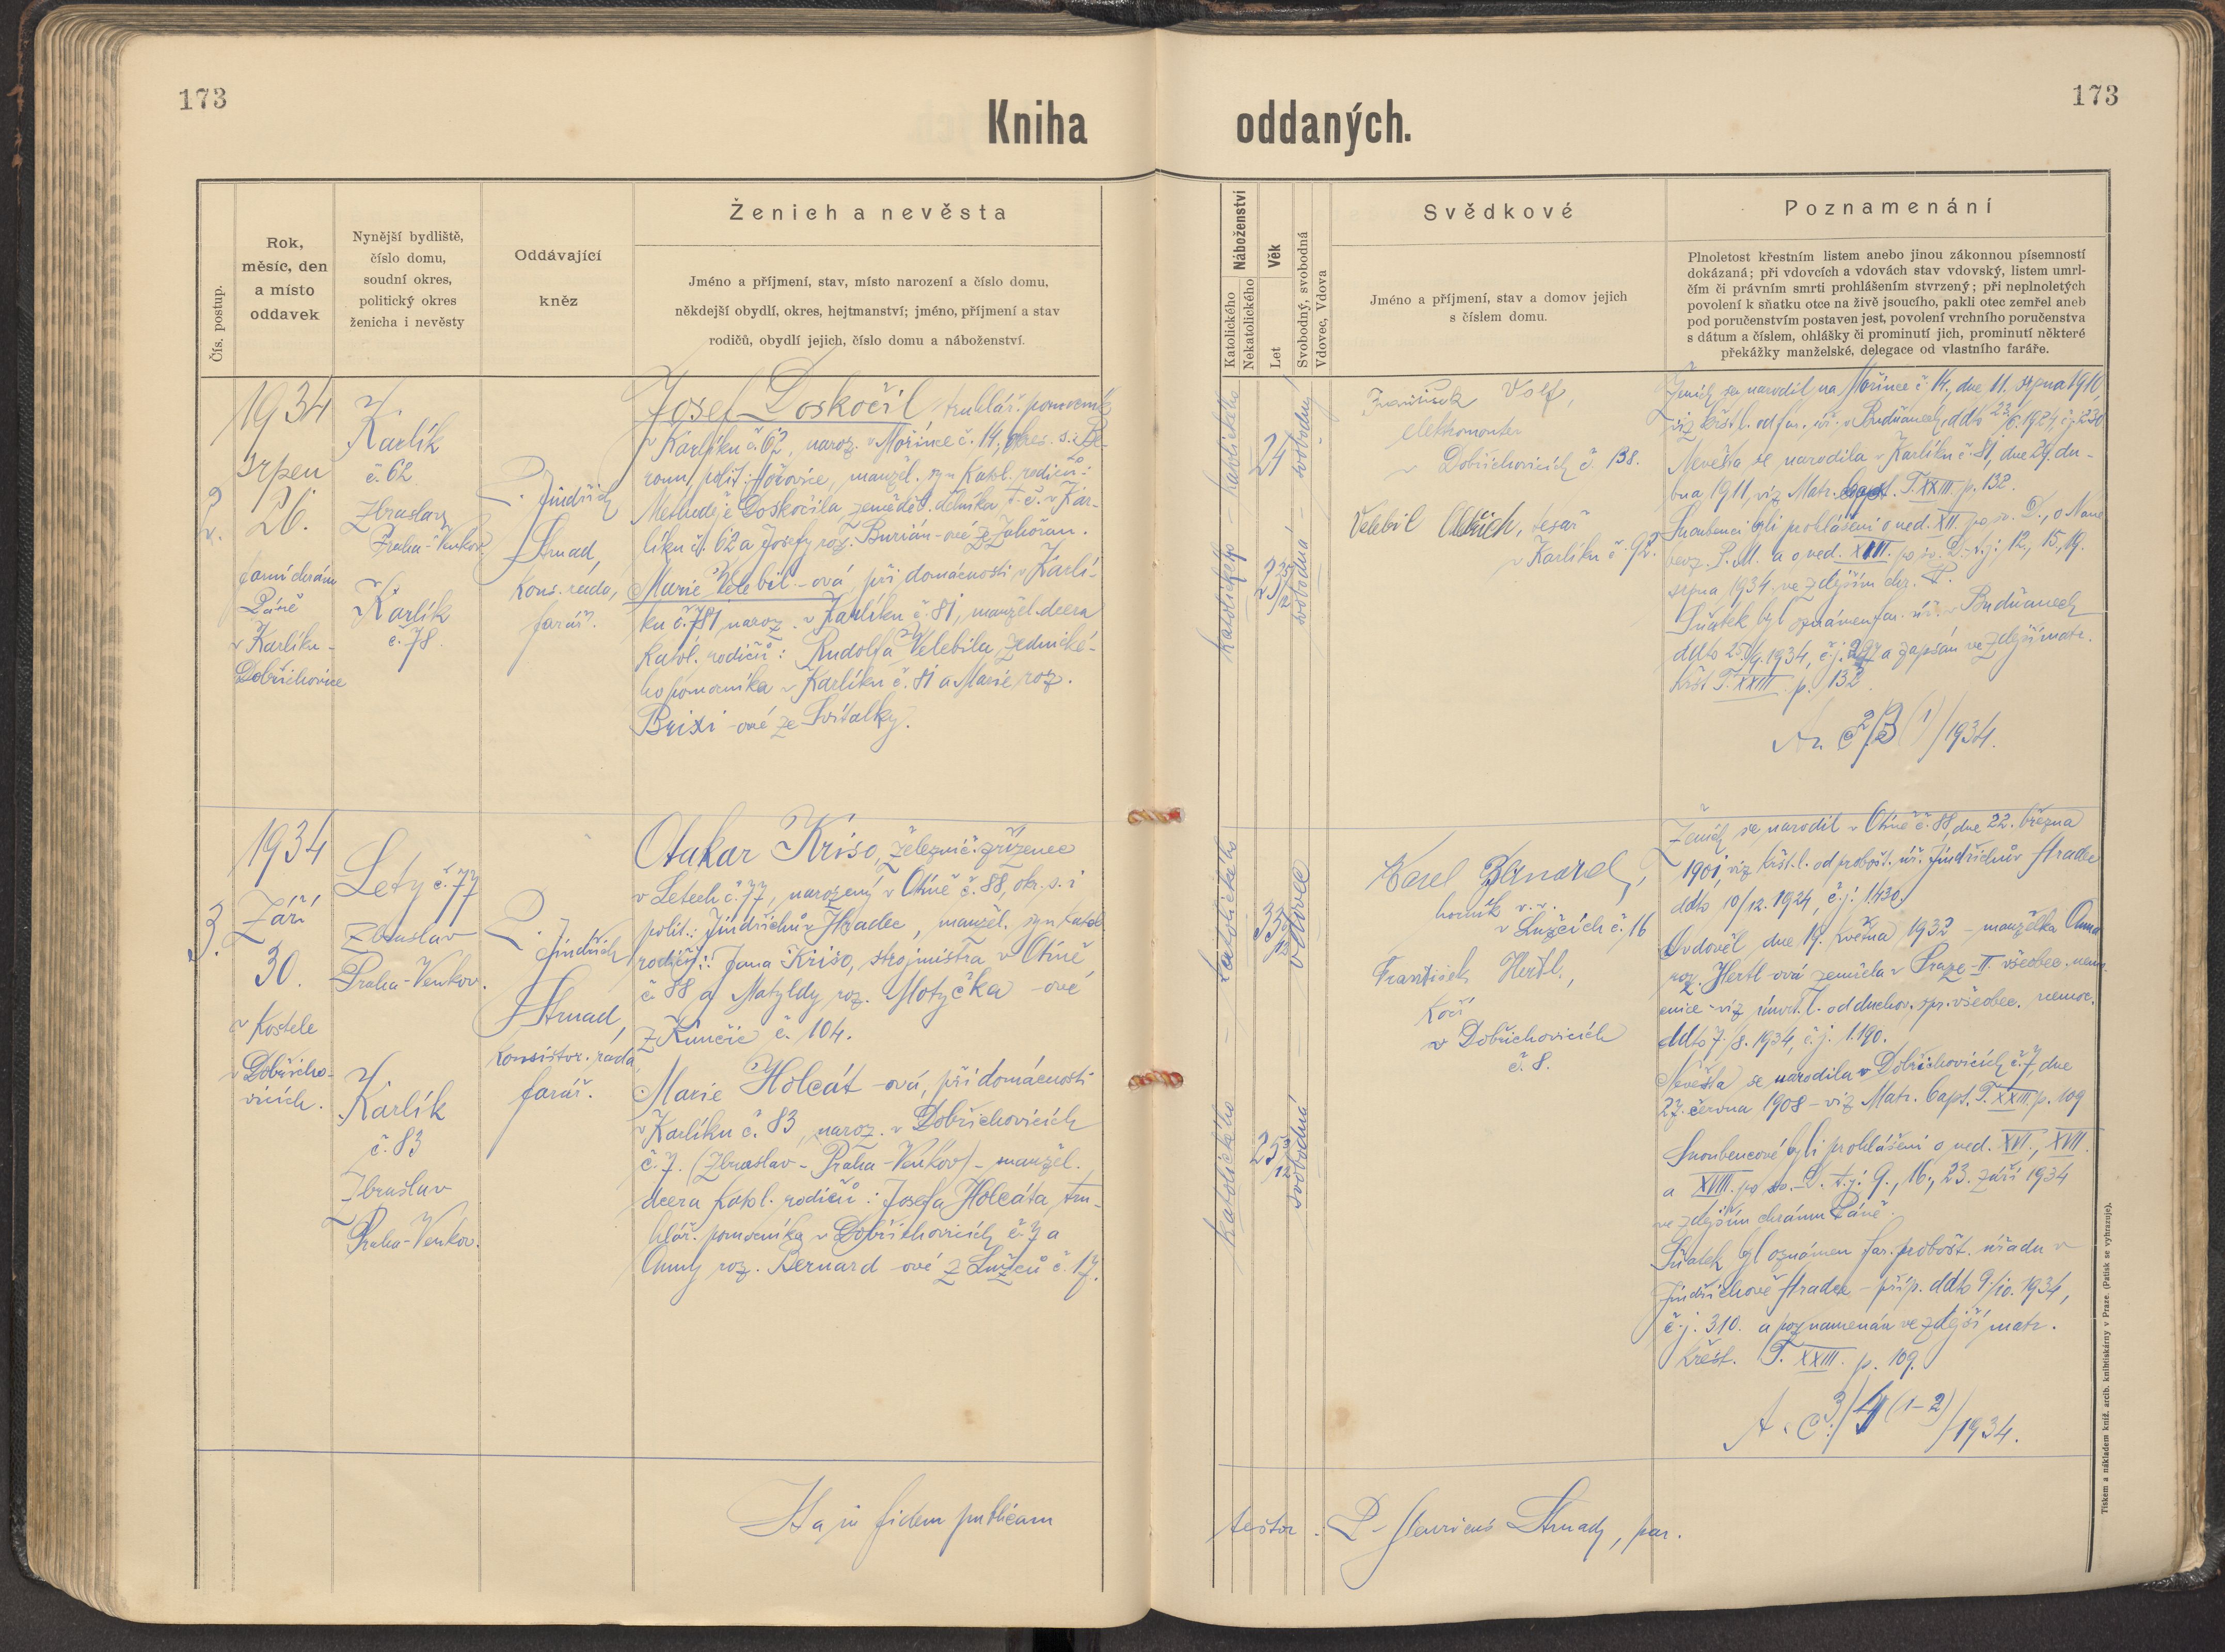 173
173
Kniha oddaných.
Čís. postup.
Rok,
měsíc, den
a místo
oddavek
Nynější bydliště,
číslo domu,
soudní okres,
politický okres
ženicha i nevěsty
Oddávající
kněz
Ženich a nevěsta
Jméno a příjmení, stav, místo narození a číslo domu,
někdejší obydlí, okres, hejtmanství; jméno, příjmení a stav
rodičů, obydlí jejich, číslo domu a náboženství.
Náboženství
Katolického
Nekatolického
Věk
Let
Svobodný, svobodná
Vdovec, Vdova
Svědkové
Jméno a příjmení, stav a domov jejich
s číslem domu.
Poznamenání
Plnoletost křestním listem anebo jinou zákonnou písemností
dokázaná; při vdovcích a vdovách stav vdovský, listem umrl-
čím či právním smrti prohlášením stvrzený; při neplnoletých
povolení k sňatku otce na živě jsoucího, pakli otec zemřel aneb
pod poručenstvím postaven jest, povolení vrchního poručenstva
s dátum a číslem, ohlášky či prominutí jich, prominutí některé
překážky manželské, delegace od vlastního faráře.
2.
1934
srpen
26.
farní chrám
Páně
v Karlíku -
Dobřichovice
Karlík
č. 62
Zbraslav
Praha-Venkov.
Karlík
č. 78
P. Jindřich
Strnad,
kons. rada,
farář.
Josef Doskočil truhlář. pomocník
v Karlíku č. 62, naroz. v Mořince č. 14, okres. s.: Be-
roun, polit.: Hořovice, manžel. syn katol. rodičů:
Methuděje Doskočila, zeměděl. dělníka t. č. v Kar-
líku č. 62 a Josefy roz. Burián-ové ze Zahořan.
Marie Velebil-ová při domácnosti v Karlí-
ku č. 781 naroz. v Karlíku č. 81, manžel. dcera
katol. rodičů: Rudolfa Velebila, zednické-
ho pomocníka v Karlíku č. 81 a Marie roz.
Brixi-ové ze Svítalky.
katolického - katolického
24
23
svobodná - svobodný
František Volf,
elektromonter
v Dobřichovicích č. 138.
Velebil Oldřich, tesař
v Karlíku č. 92.
Ženich se narodil na Mořince č. 14, dne 11. srpna 1910,
viz křest. l. od far. úř. v Budňanech ddto 23/6. 1924, č.j. 230
Nevěsta se narodila v Karlíku č. 81, dne 29. du-
bna 1911, viz Matr. bapt. T. XXIII p. 132.
Snoubenci byli prohlášeni o ned. XII. po sv. D., o Nane
bevz. P. M. a o ned. XIII. po sv. D. t. j. 12., 15., 19.
srpna 1934 ve zdejším chr. P.
Sňatek byl oznámen far. úř. v Budňanech
ddto 25/9. 1934, č.j. 297 a zapsán ve zdejší matr.
křest. T. XXIII p. 132.
č. 2/3 (1)/1934.
3.
1934
Září
30.
v kostele
v Dobřicho-
vicích.
Lety č. 77
Zbraslav
Praha-Venkov.
Karlík
č. 83
Zbraslav
Praha-Venkov.
P. Jindřich
Strnad,
konsistor. rada,
farář.
Otakar Kriso, železnič. zřízenec
v Letech č. 77, narozený v Otíně č. 88, okr. s. i
polit.: Jindřichův Hradec, manžel. syn katol.
rodičů: Jana Kriso, strojmistra v Otíně
č. 88 a Matyldy roz. Motyčka-ové
z Kunčic č. 104.
Marie Holcát-ová, při domácnosti
v Karlíku č. 83, naroz. v Dobřichovicích
č. 7. (Zbraslav - Praha-Venkov) - manžel.
dcera katol. rodičů: Josefa Holcáta, tru-
hlář. pomocníka v Dobřichovicích č. 7 a
Anny roz. Bernard-ové z Lužců č. 17.
katolického - katolického
33 6/12
25 3/12
svobodná - vdovec
Karel Bernard,
horník v. v.
v Lužcích č. 16
František Hertl,
kočí
v Dobřichovicích
č. 8.
Ženich se narodil v Otíně č. 88, dne 22. března
1901, viz křest. l. od probošt. úř. Jindřichův Hradec
ddto 10/12. 1924, č.j. 1430.
Ovdověl dne 19. května 1932 - manželka Anna
roz. Hertl-ová zemřela v Praze-II. všeobec. nemo-
cnice - viz úmrt. l. od duchov. spr. všeobec. nemoc.
ddto 7./8. 1934, č.j. 1.190.
Nevěsta se narodila v Dobřichovicích č. 7 dne
27. června 1908 - viz Matr. bapt. T. XXIII p. 109
Snoubencové byli prohlášeni o ned. XVI., XVII.
a XVIII. po sv. D. t. j. 9., 16., 23. září 1934
ve zdejším chrámu Páně.
Sňatek byl oznámen far. probošt. úřadu v
Jindřichově Hradci - příp. ddto 9/10. 1934,
č.j. 310. a poznamenán ve zdejší matr.
křest. T. XXIII. p. 109.
A. č. 3/4 (1-2)/1934.
Ita in fidem publicam
testor. P. Henricus Strnad, par.
Tiskem a nákladem kníž. arcib. knihtiskárny v Praze. (Patisk se vyhrazuje).